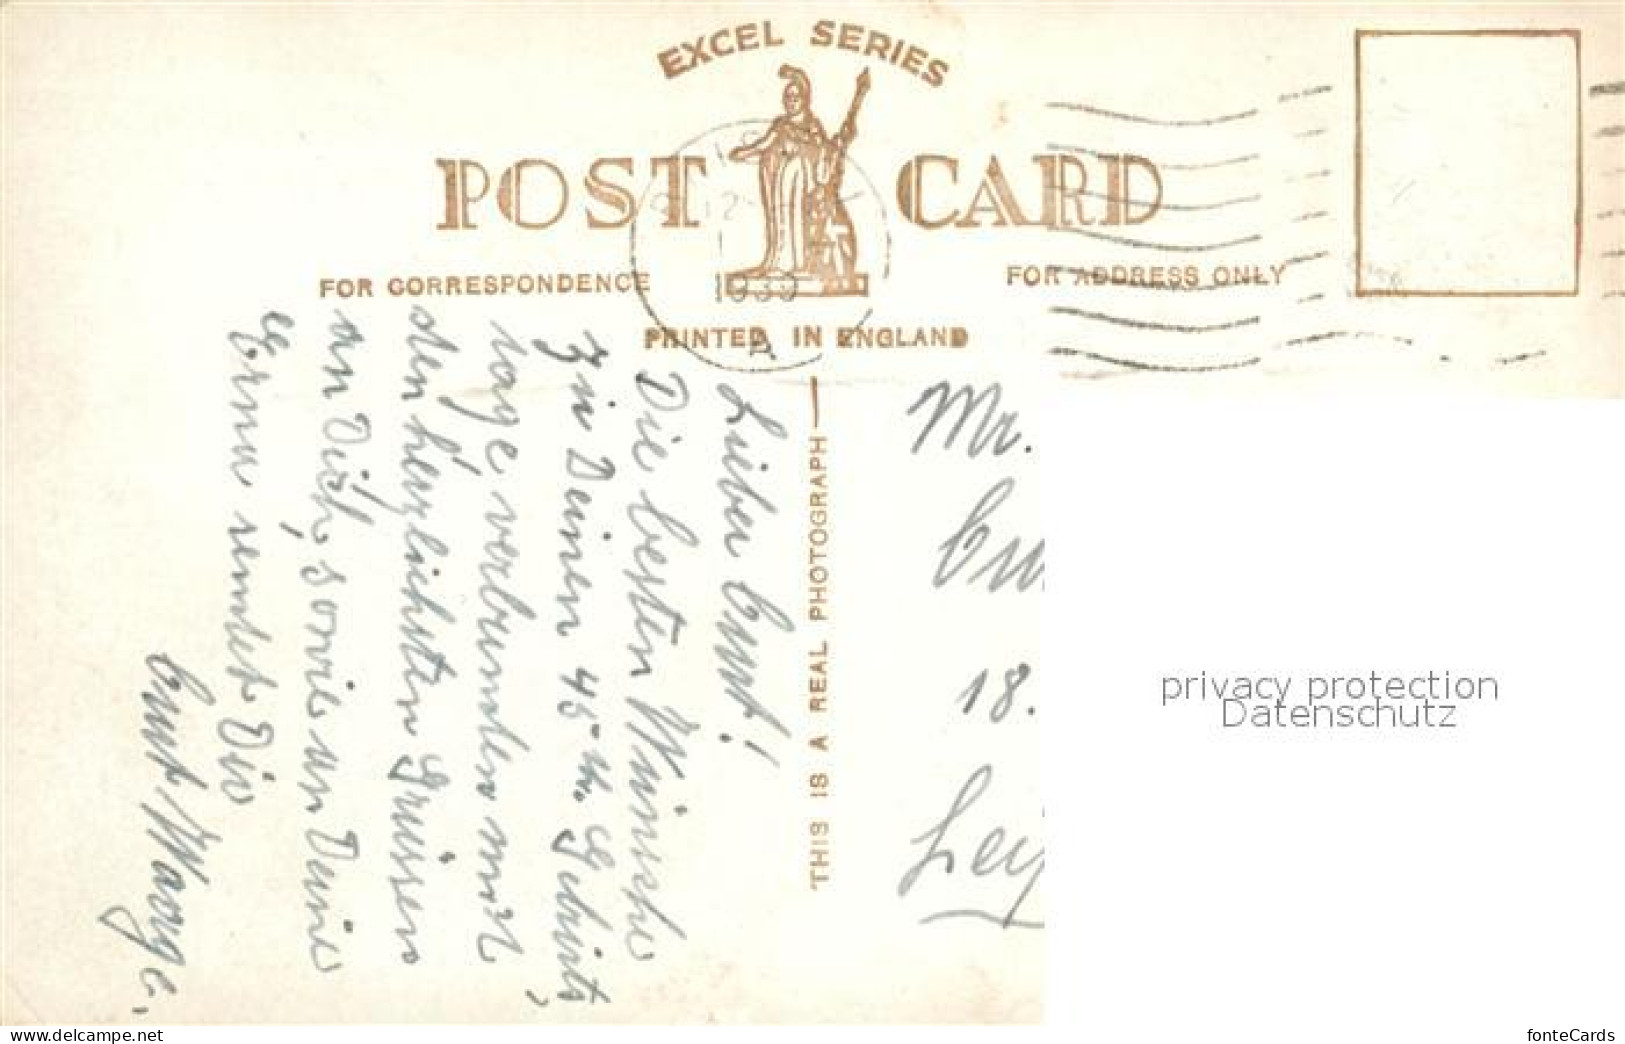 EXCEL SERIES
POST CARD
FOR CORRESPONDENCE
FOR ADDRESS ONLY
1939
PRINTED IN ENGLAND
A
THIS IS A REAL PHOTOGRAPH
Lieber Curt!
Die besten Wünsche
zu Deinen 45-ten Geburts,
tage verbunden mit
den herzlichsten Grüssen
an Dich, sowie an Deine
Erna sendet Dir
Curt / Marge.
Mr.
18.
privacy protection
Datenschutz
www.delcampe.net
fonteCards